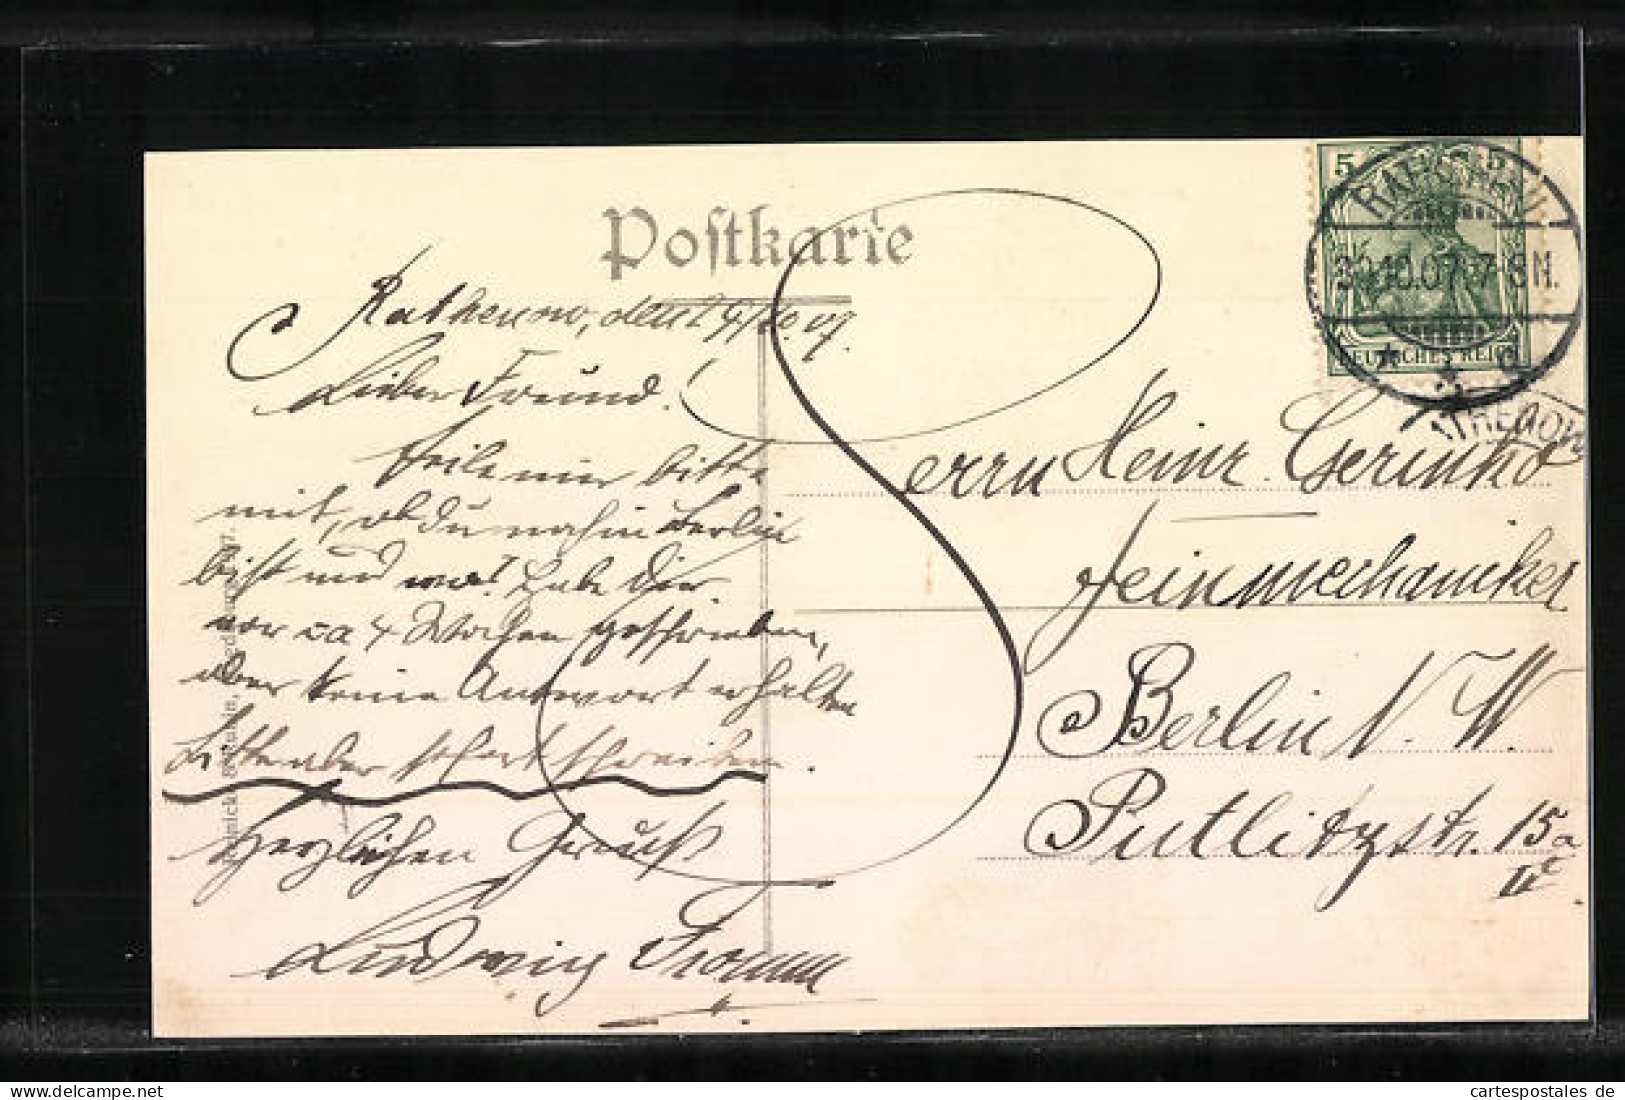 Postkarte
Rathenow, den 29/10.07.
Lieber Freund!
Teile mir bitte
mit, ob du noch in Berlin
bist und wo? Habe Dir
vor ca 4 Wochen geschrieben,
aber keine Antwort erhalten
Bitte aber sofort schreiben.
Herzlichen Gruß
Ludwig
Herrn Heinr.
Feinmechaniker
Berlin N. W.
Putlitzstr. 15a
II
5 5
DEUTSCHES REICH
RATHENOW
30.10.07.7-8N.
* d
cartespostales de